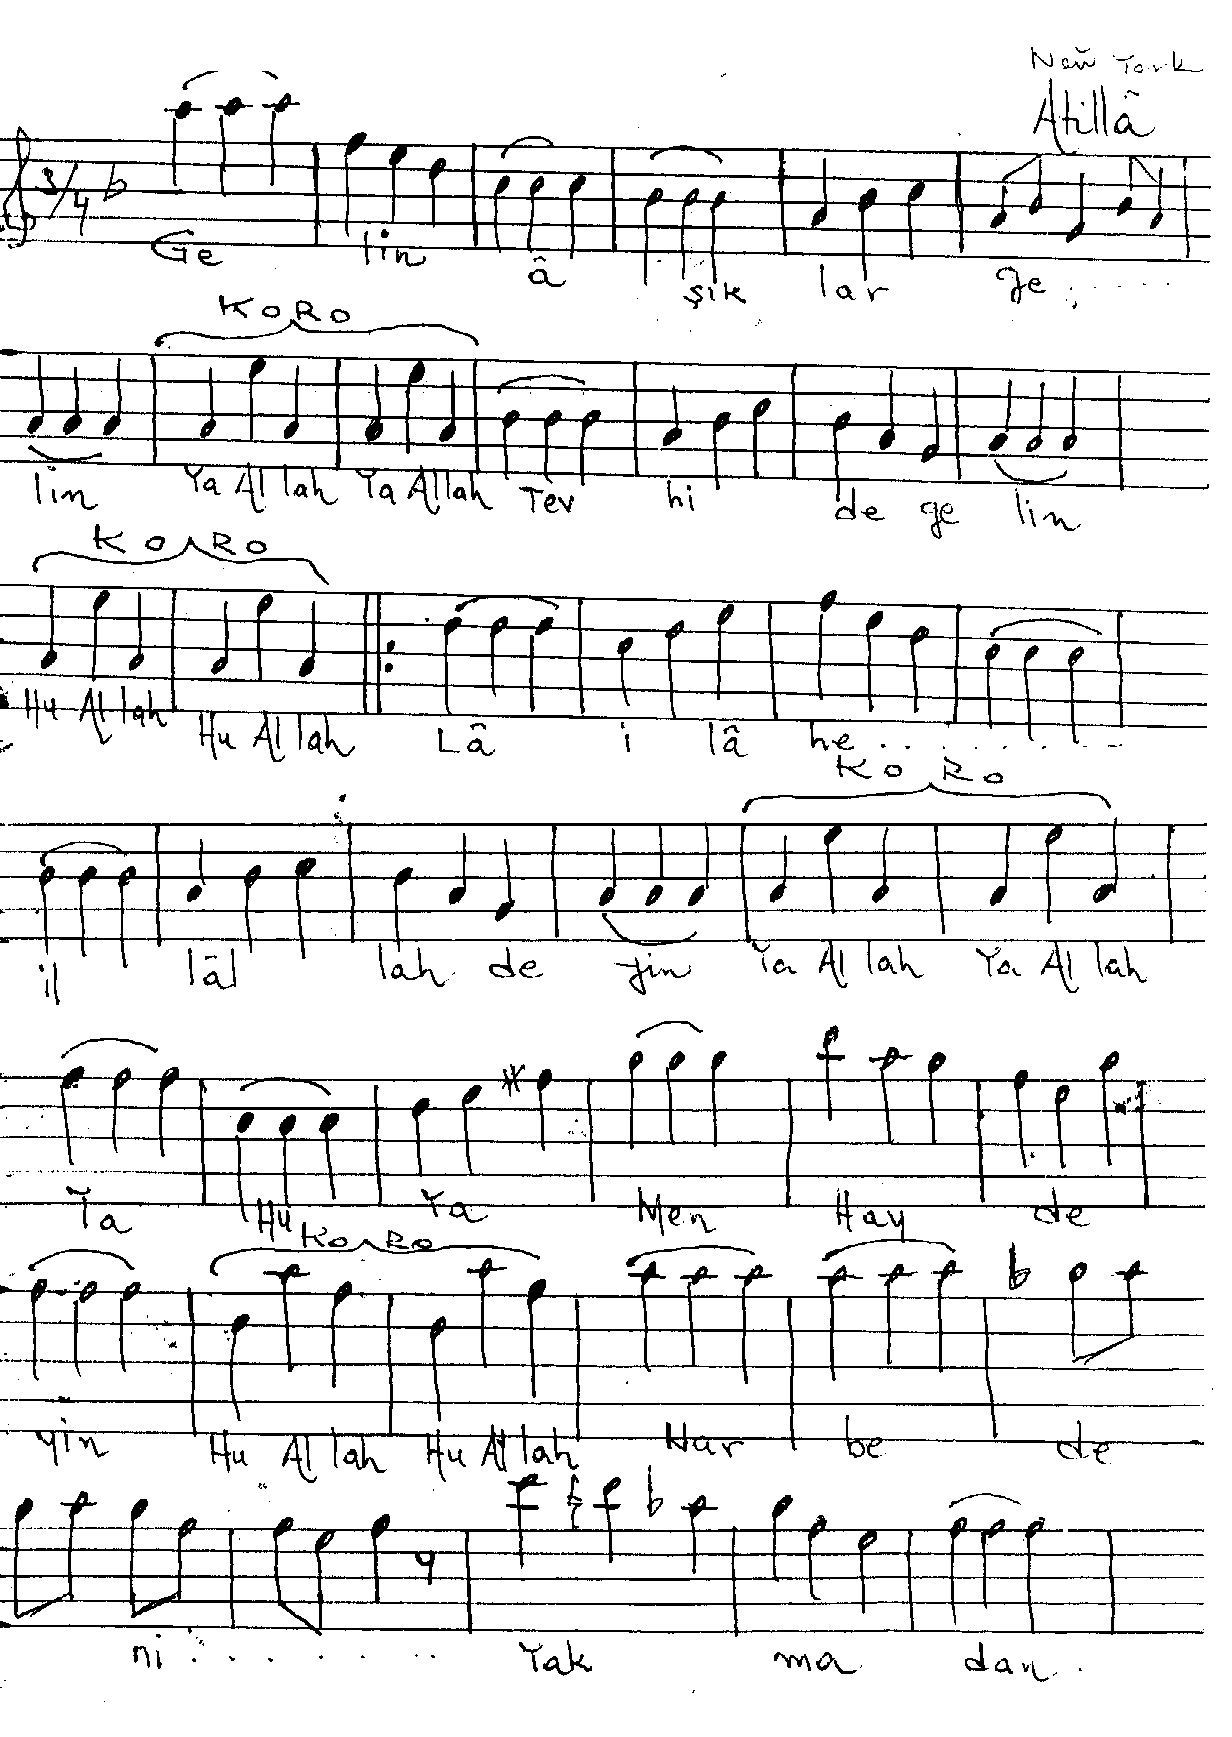 New York
Atillâ
3/4
Ge lin â şık lar ge . . . . .
KORO
lim Ya Allah Ya Allah Tev hi de ge lin
KORO
Hu Allah Hu Allah Lâ i lâ he . . . . . . . .
KORO
il lâl lah de yin Ya Allah Ya Allah
Ya Hu Ya Men Hay de
KORO
yin Hu Allah Hu Allah Nar be de
ni . . . . . . . Yak ma dan .